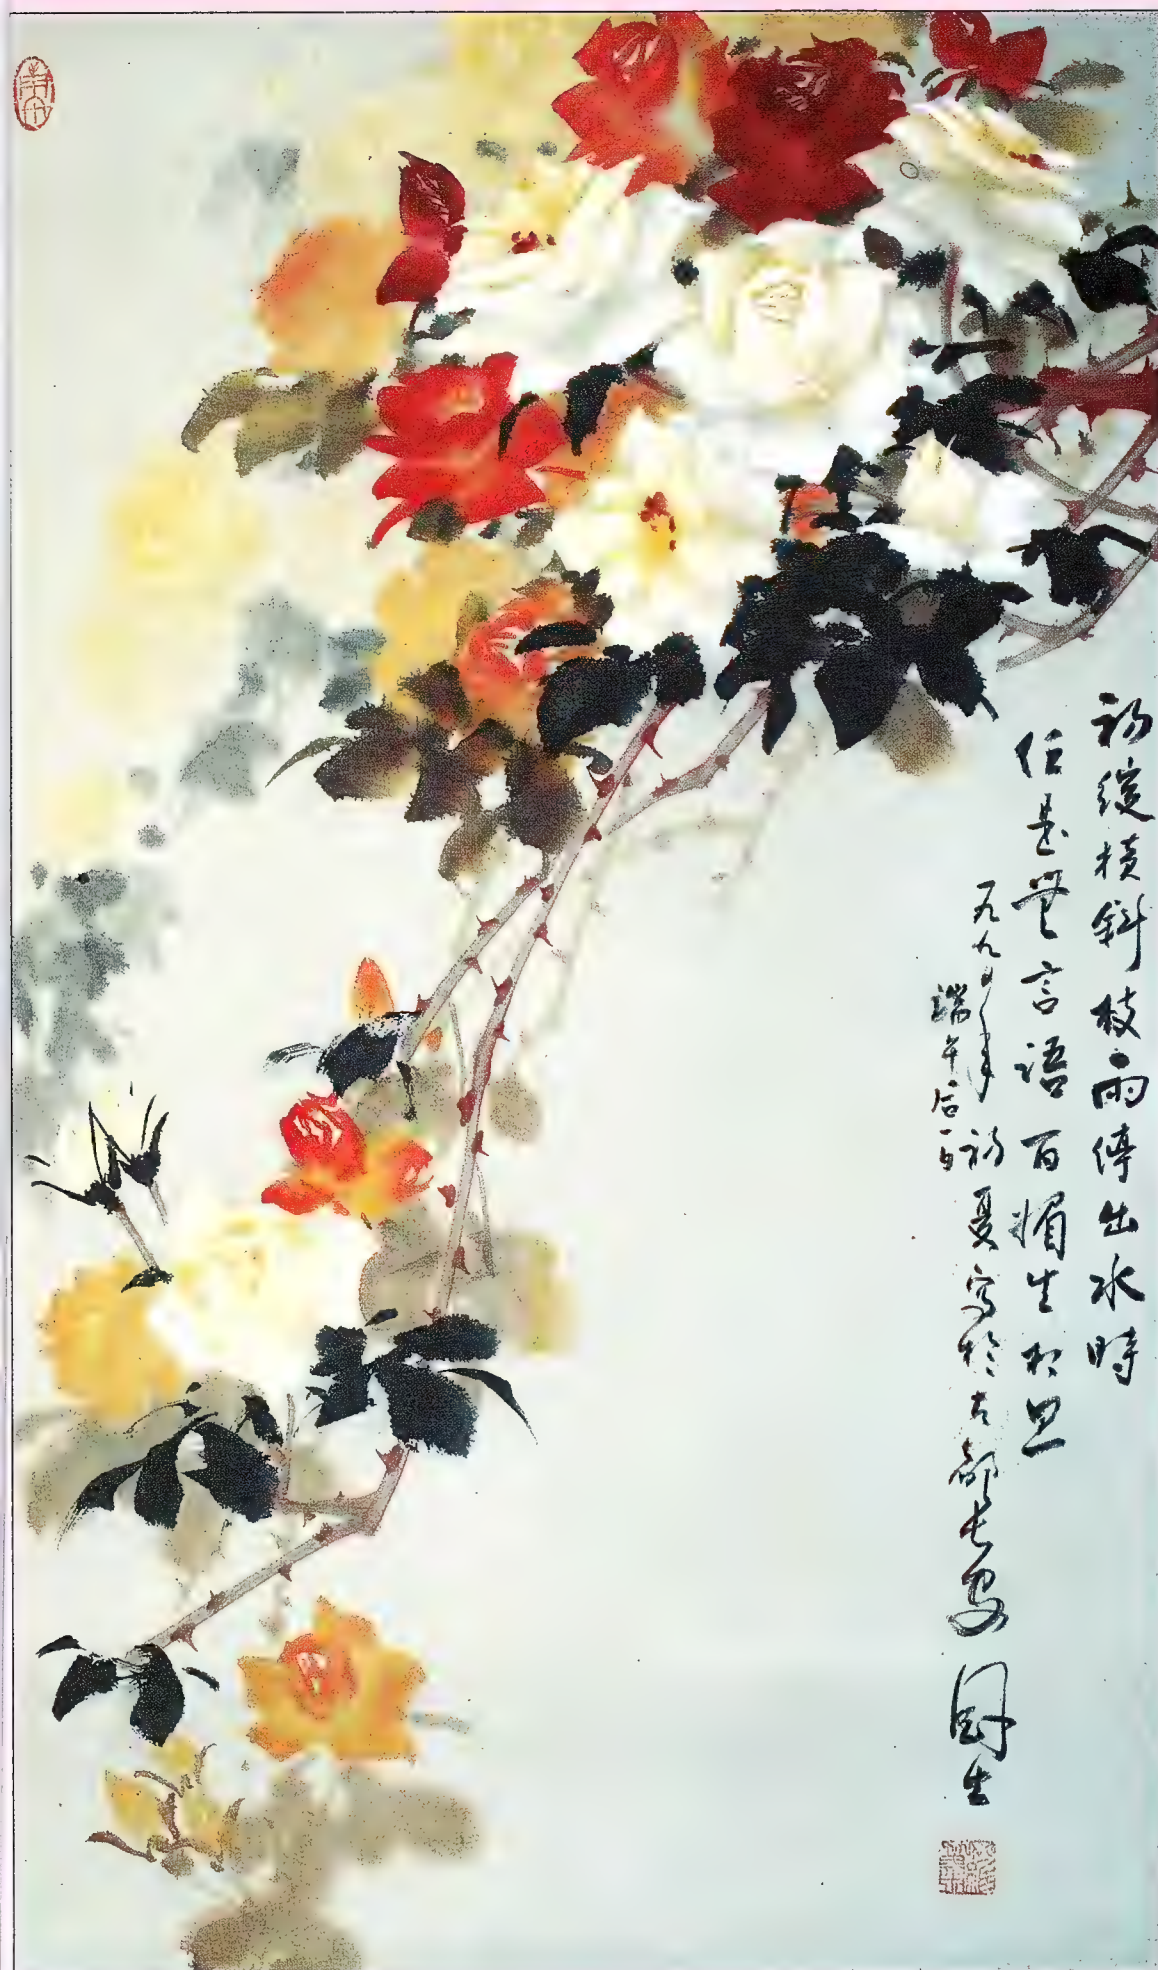 初绽横斜枝雨停出水時
任是無言語百媚生於思
一九九〇年初夏寫於古都長安
端午后一日
國生